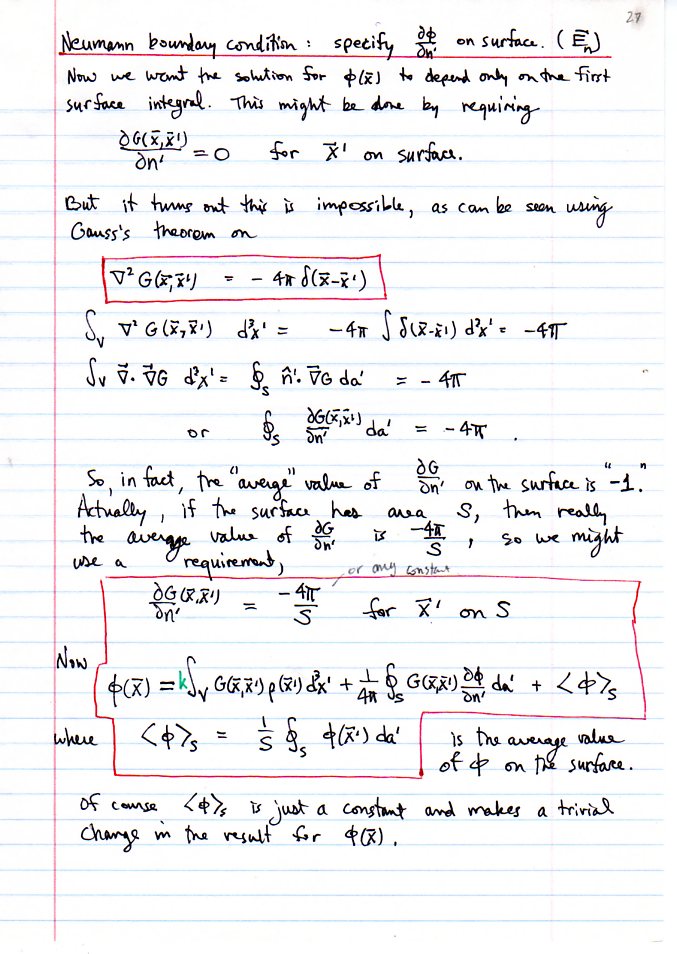 27
Neumann boundary condition : specify ∂ϕ/∂n' on surface. (E⃗ₙ)
Now we want the solution for ϕ(x̄) to depend only on the first
surface integral. This might be done by requiring
∂G(x̄,x̄')/∂n' = 0 for x̄' on surface.
But it turns out this is impossible, as can be seen using
Gauss's theorem on
∇² G(x̄,x̄') = - 4π δ(x̄-x̄')
∫ᵥ ∇² G(x̄,x̄') d³x' = -4π ∫ δ(x̄-x̄') d³x' = -4π
∫ᵥ ∇⃗· ∇⃗G d³x' = ∮ₛ n̂'· ∇⃗G da' = - 4π
or ∮ₛ ∂G(x̄,x̄')/∂n' da' = -4π .
So, in fact, the "averge" value of ∂G/∂n' on the surface is "-1."
Actually, if the surface has area S, then really
the average value of ∂G/∂n' is -4π/S , so we might
use a requirement,
or any constant
∂G(x̄,x̄')/∂n' = -4π/S for x̄' on S
Now
ϕ(x̄) = k∫ᵥ G(x̄,x̄') ρ(x̄') d³x' + 1/4π ∮ₛ G(x̄,x̄') ∂ϕ/∂n' da' + <ϕ>ₛ
where <ϕ>ₛ = 1/S ∮ₛ ϕ(x̄') da' is the average value
of ϕ on the surface.
Of course <ϕ>ₛ is just a constant and makes a trivial
change in the result for ϕ(x̄).